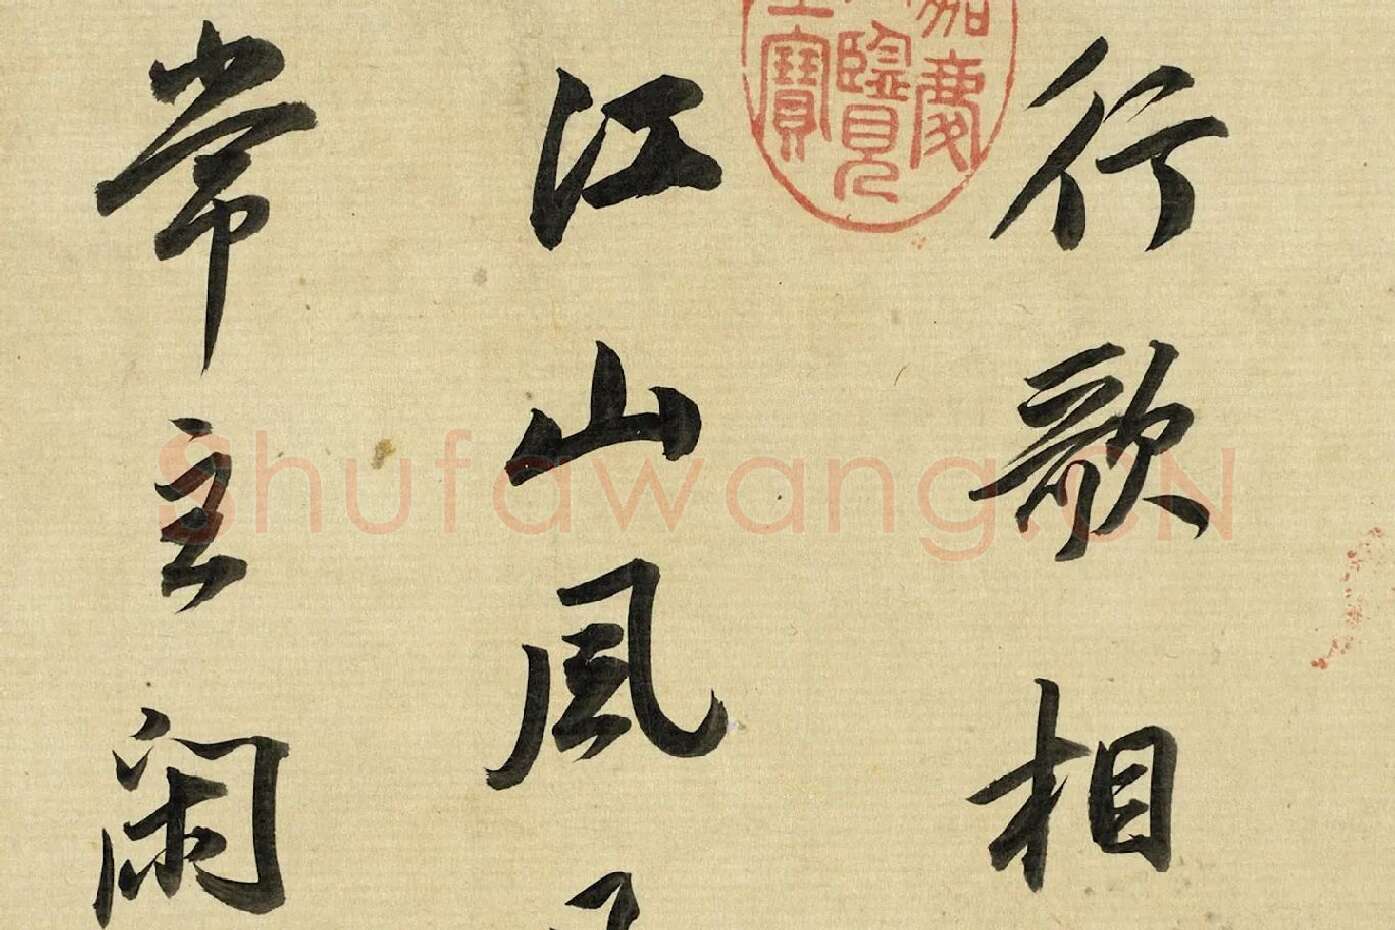 行歌相
嘉慶
覽
寶
江山風
常主閑
Shufawang.CN